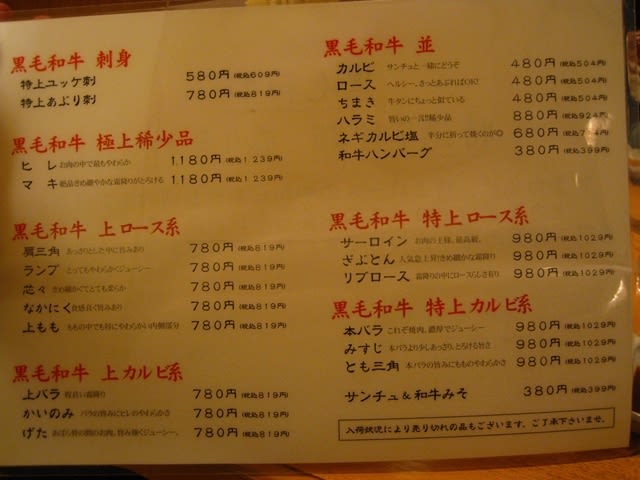 黒毛和牛 刺身
特上ユッケ刺 580円(税込609円)
特上あぶり刺 780円(税込819円)
黒毛和牛 極上稀少品
ヒレ お肉の中で最もやわらか 1.180円(税込1.239円)
マキ 絶品きめ細やかな霜降りがとろける 1.180円(税込1.239円)
黒毛和牛 上ロース系
肩三角 あっさりとした中に旨みあり 780円(税込819円)
ランプ とってもやわらかくジューシー 780円(税込819円)
芯々 きめ細かくてとても柔らか 780円(税込819円)
なかにく 食感良く旨みあり 780円(税込819円)
上もも ももの中でも特にやわらかい内側部分 780円(税込819円)
黒毛和牛 上カルビ系
上バラ 程良い霜降り 780円(税込819円)
かいのみ バラの旨みにヒレのやわらかさ 780円(税込819円)
げた あばら骨の間のお肉。旨み強くジューシー。 780円(税込819円)
黒毛和牛 並
カルビ サンチュと一緒にどうぞ 480円(税込504円)
ロース ヘルシー、さっとあぶればOK! 480円(税込504円)
ちまき 牛タンにちょっと似ている 480円(税込504円)
ハラミ 旨いの一言!!稀少品 880円(税込924円)
ネギカルビ塩 半分に折って焼くのが◎ 680円(税込714円)
和牛ハンバーグ 380円(税込399円)
黒毛和牛 特上ロース系
サーロイン お肉の王様。最高級。 980円(税込1029円)
ざぶとん 人気急上昇!きめ細かな霜降り 980円(税込1029円)
リブロース 霜降りの中にロースらしさ有り 980円(税込1029円)
黒毛和牛 特上カルビ系
本バラ これぞ焼肉。濃厚でジューシー 980円(税込1029円)
みすじ 本バラより少しあっさり、とろける旨さ 980円(税込1029円)
とも三角 本バラの旨みにもものやわらかさ 980円(税込1029円)
サンチュ&和牛みそ 380円(税込399円)
入荷状況により売り切れの品もございます。ご了承下さいませ。